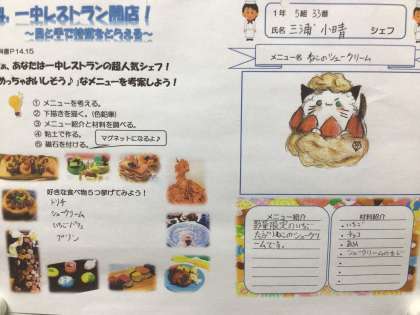 一中レストラン開店！
1年 5組 33番
氏名 三浦 小晴 シェフ
P14.15
あなたは一中レストランの超人気シェフ！
めっちゃおいしそう♪」なメニューを考案しよう！
① メニューを考える。
② 下描きを描く。（色鉛筆）
③ メニュー紹介と材料を調べる。
④ 粘土で作る。
⑤ 磁石を付ける。
マグネットになるよ♪
好きな食べ物５つ挙げてみよう！
シュークリーム
いちごパフェ
プリン
メニュー名 ねこのシュークリーム
メニュー紹介
数量限定のいちご
たっぷりねこのシュークリ
ームです。
材料紹介
・いちご
・チョコ